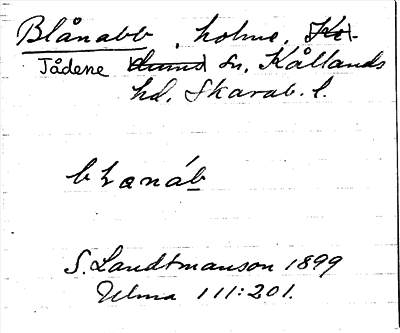 Blånabb, holme,
Tådene sn, Kållands
hd, Skarab. l.
bLanáb
S. Landtmanson 1899
Ulma 111:201.